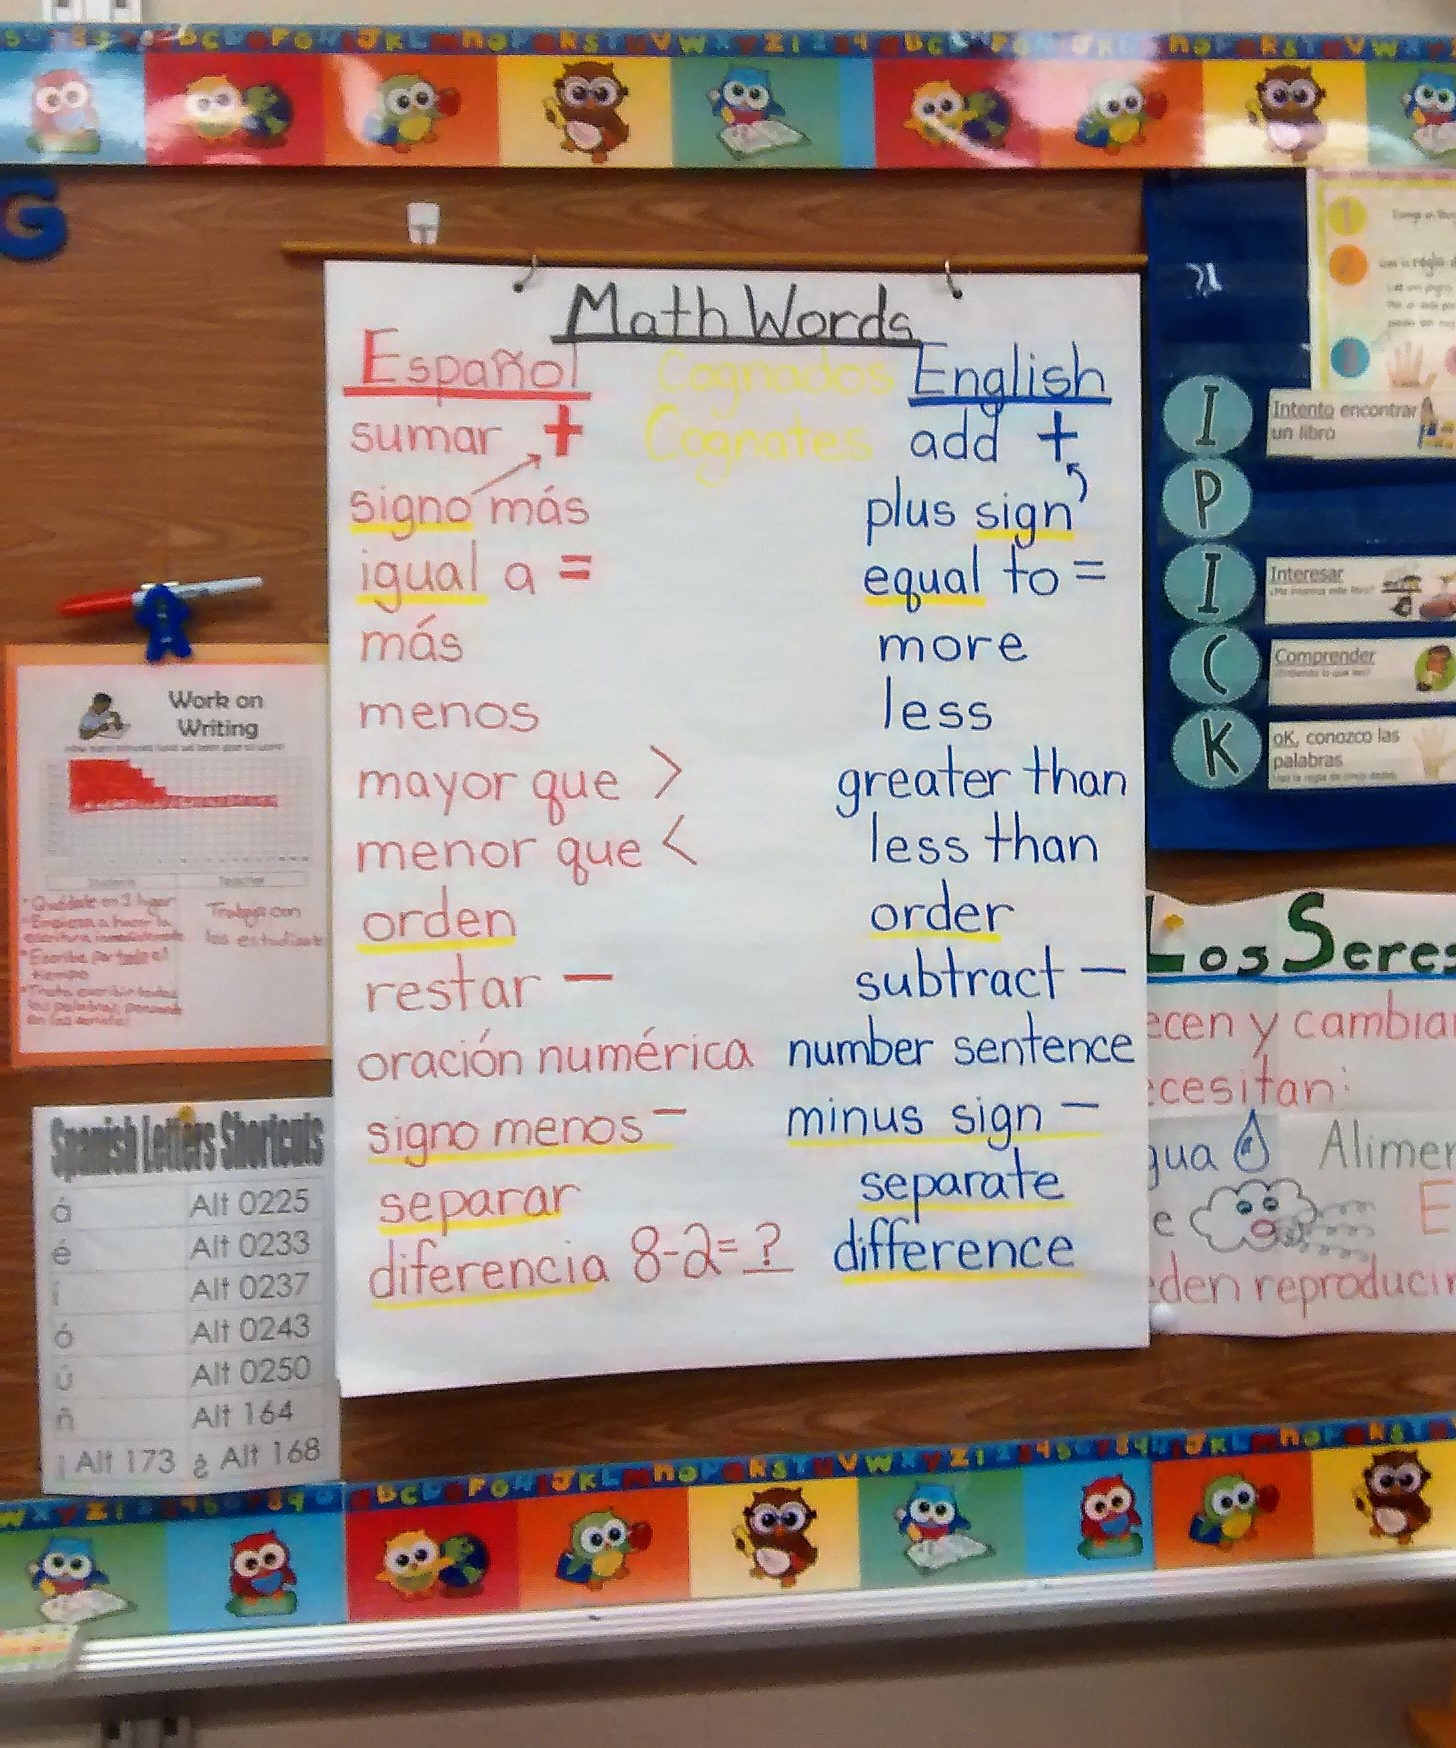 G
Math Words
Español Cognados English
sumar + Cognates add +
signo más plus sign
igual a = equal to =
más more
menos less
mayor que > greater than
menor que < less than
orden order
restar — subtract —
oración numérica number sentence
signo menos — minus sign —
separar separate
diferencia 8-2=? difference
Work on
Writing
Students Teacher
Quédate en 1 lugar
Trabaja con
los estudiantes
Spanish Letters Shortcuts
á Alt 0225
é Alt 0233
í Alt 0237
ó Alt 0243
ú Alt 0250
ñ Alt 164
¡ Alt 173 ¿ Alt 168
1
2
3
I Intento encontrar
un libro
P
I Interesar
C Comprender
K oK, conozco las
palabras
Los Seres
ecen y cambia
ecesitan:
gua Alimen
e E
eden reproducir